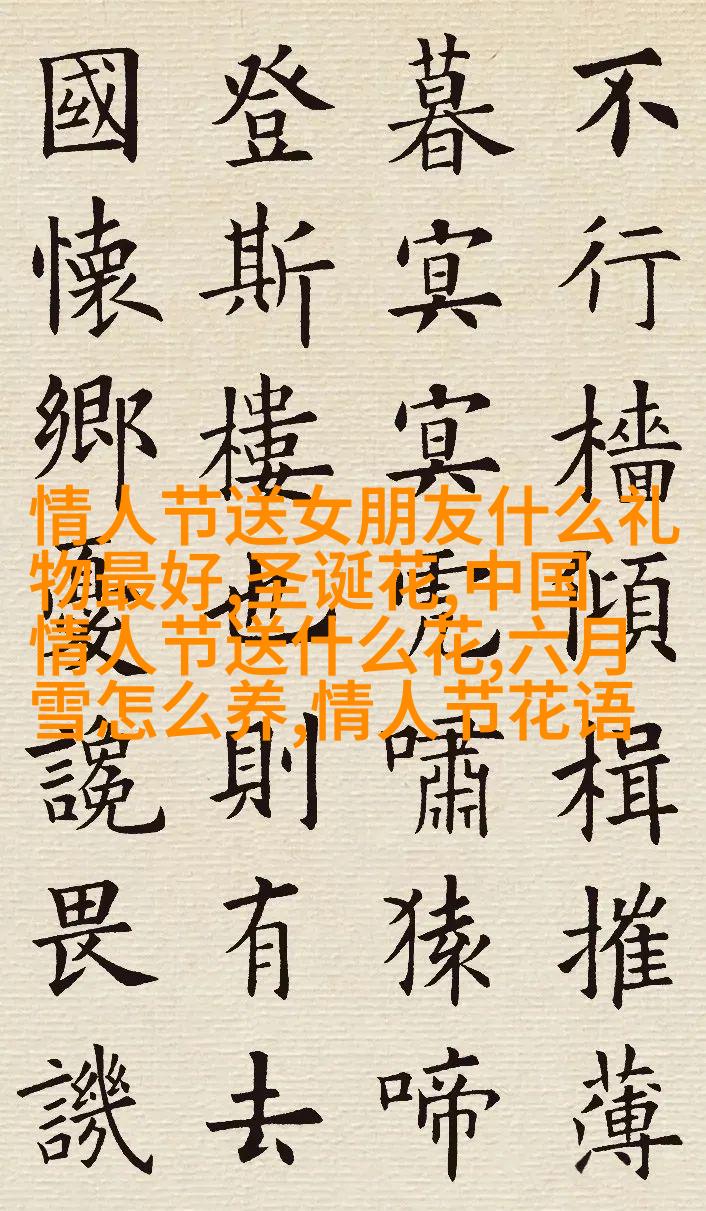 不行檣傾楫摧薄
暮冥冥虎嘯猿啼
登斯樓也則有去
國懷鄉憂讒畏譏
情人节送女朋友什么礼
物最好,圣诞花,中国
情人节送什么花,六月
雪怎么养,情人节花语